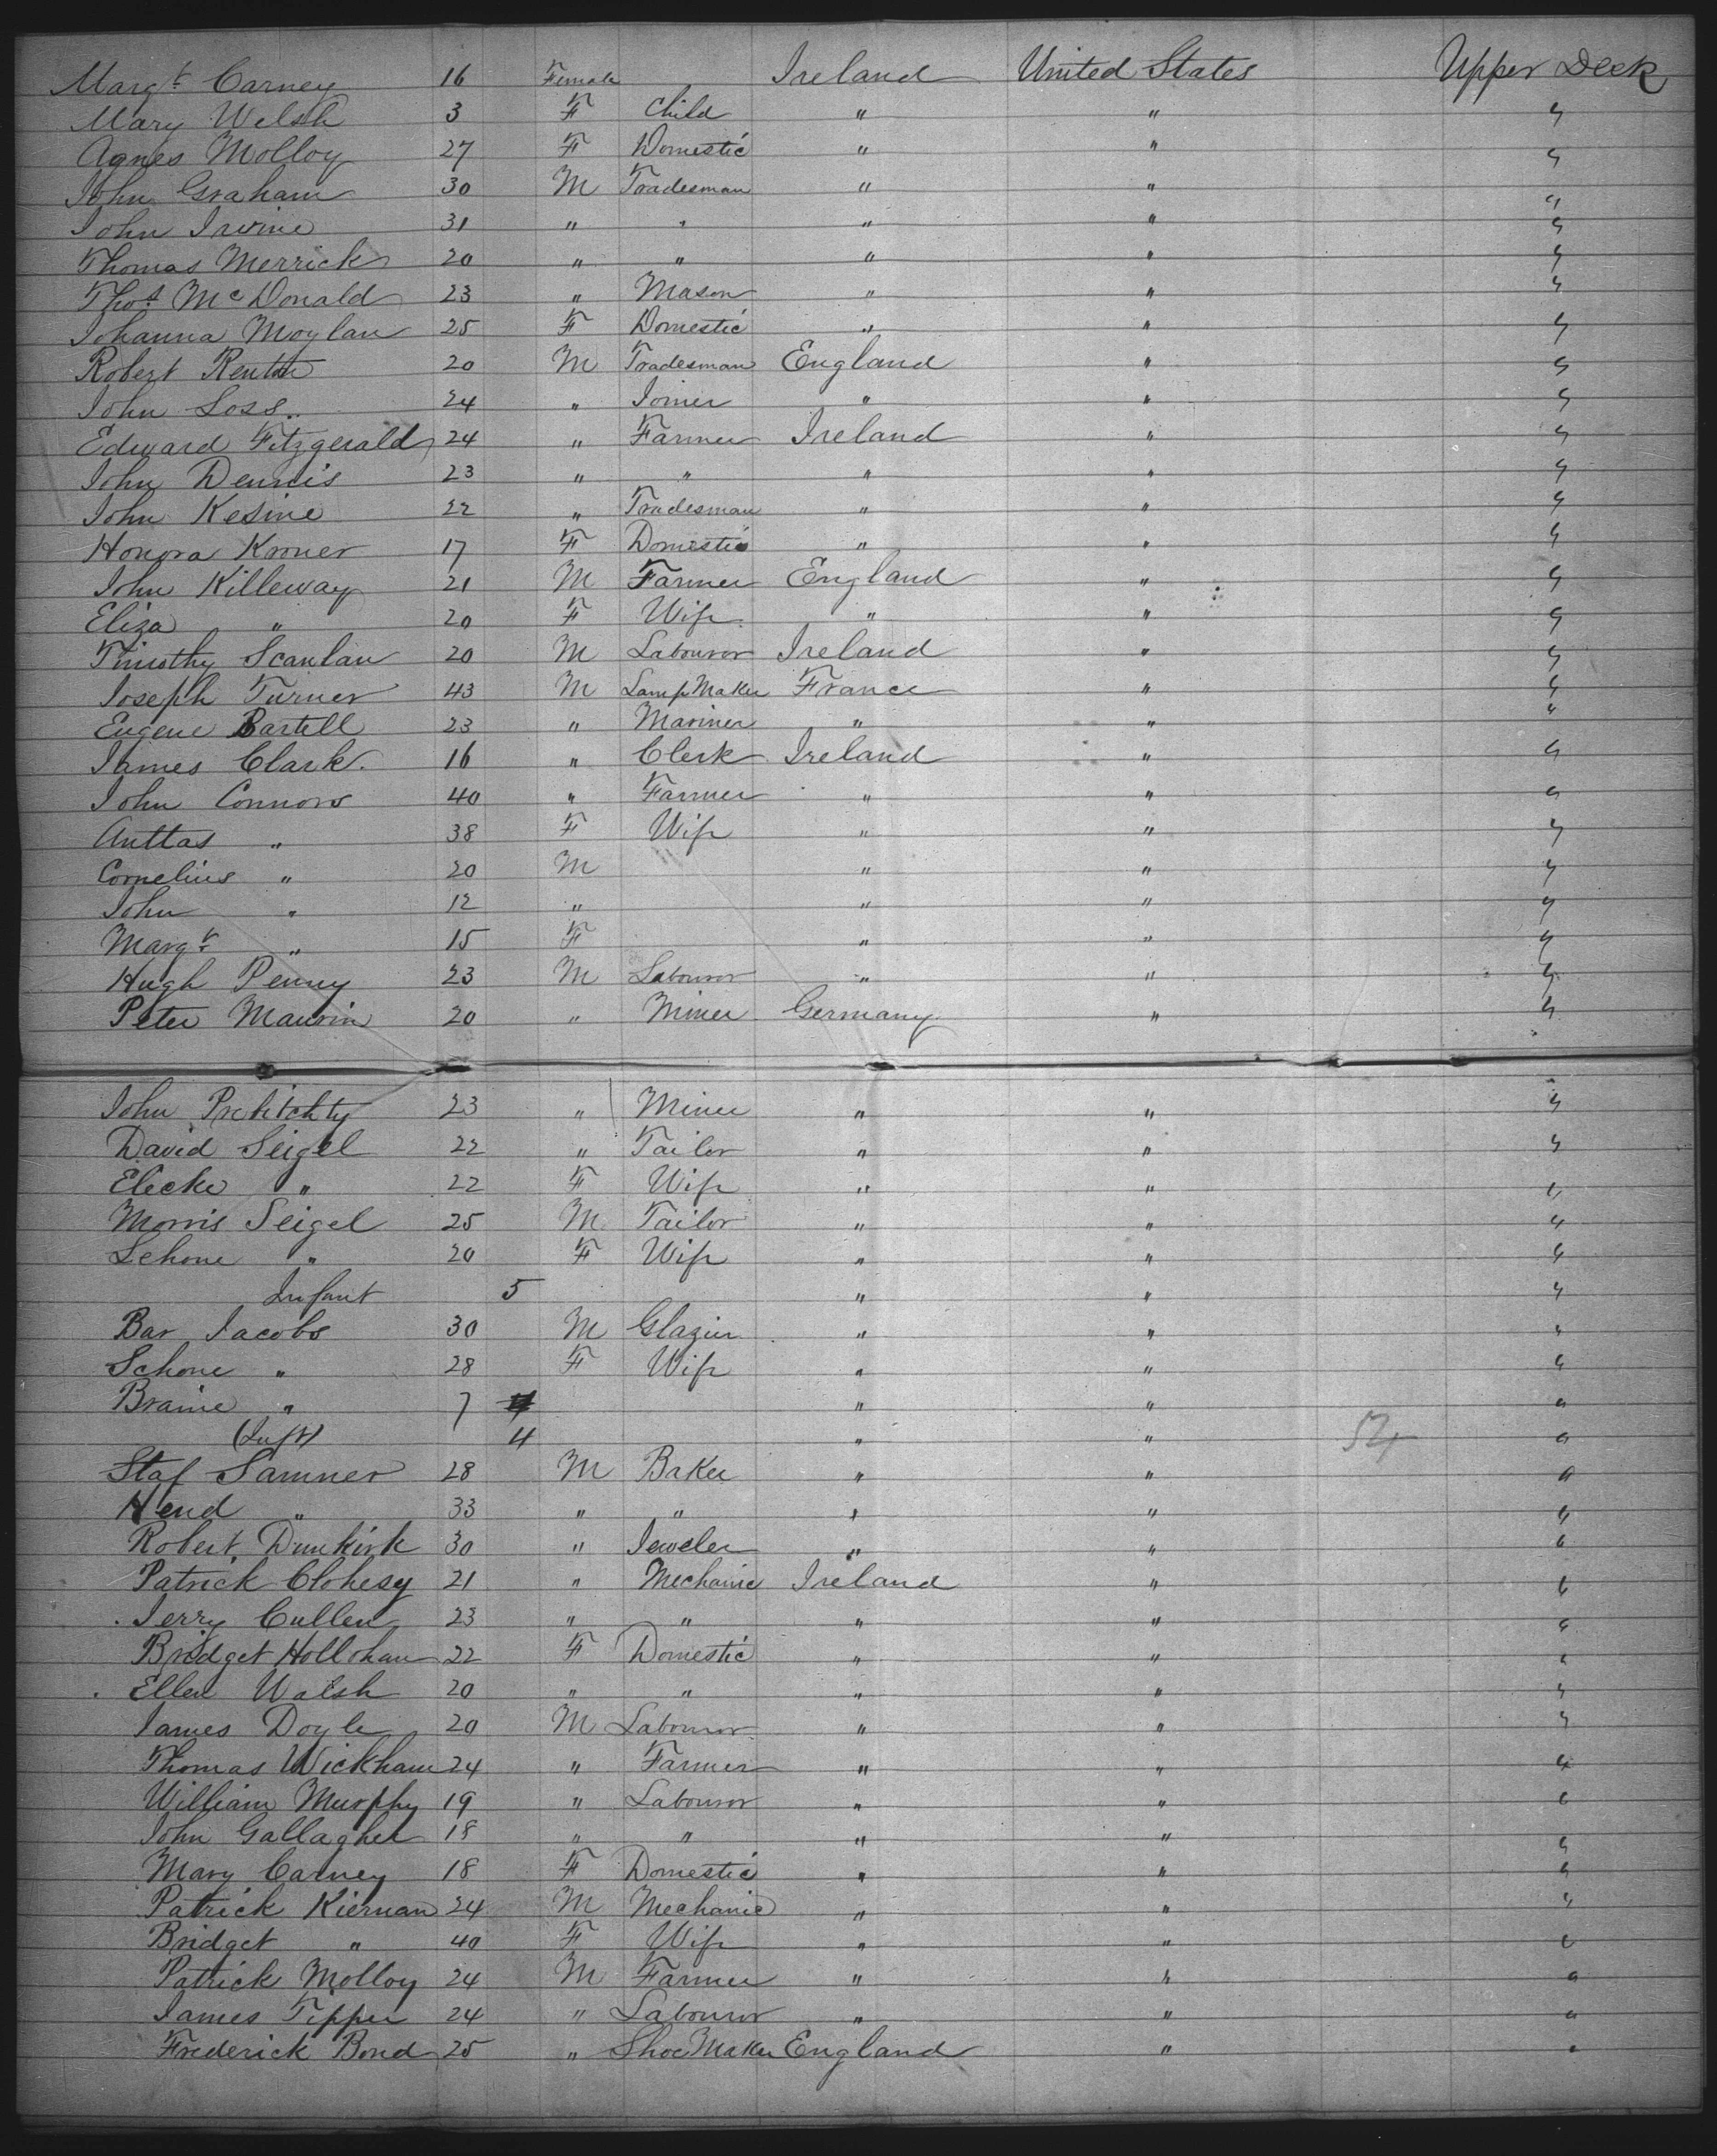 Margt. Carney 16 Female Ireland United States Upper Deck
Mary Welsh 3 F Child " " "
Agnes Molloy 27 F Domestic " " "
John Graham 30 M Tradesman " " "
John Irvine 31 " " " " "
Thomas Merrick 20 " " " " "
Thos. McDonald 23 " Mason " " "
Johanna Moylan 25 F Domestic " " "
Robert 20 M Tradesman England " "
John Loss 24 " Joiner " " "
Edward Fitzgerald 24 " Farmer Ireland " "
John Dennis 23 " " " " "
John Kesine 22 " Tradesman " " "
Honora Kroner 17 F Domestic " " "
John Killeway 21 M Farmer England " "
Eliza " 20 F Wife " " "
Timothy Scanlan 20 M Labouror Ireland " "
Joseph Turner 43 M Lamp Maker France " "
Eugene Bartell 23 " Mariner " " "
James Clark. 16 " Clerk Ireland " "
John Connors 40 " Farmer " " "
Anttas " 38 F Wife " " "
Cornelius " 20 M " " "
John " 12 " " " "
Margt. " 15 F " " "
Hugh Penny 23 M Labouror " " "
Peter Maurin 20 " Miner Germany " "
John 23 " Miner " " "
David Seigel 22 " Tailor " " "
Elecke " 22 F Wife " " "
Morris Seigel 25 M Tailor " " "
Lehone " 20 F Wife " " "
Infant 5 " " "
Bar Jacobs 30 M Glazier " " "
Schone " 28 F Wife " " "
Brame " 7 " " "
(Inft) 4 " " 54 "
Staf Samner 28 M Baker " " "
Hend " 33 " " " " "
Robert Dunkirk 30 " Jeweler " " "
Patrick Clohesy 21 " Mechanic Ireland " "
Jerry Cullen 23 " " " " "
Bridget Hollohan 22 F Domestic " " "
Ellen Walsh 20 " " " " "
James Doyle 20 M Labouror " " "
Thomas Wickham 24 " Farmer " " "
William Murphy 19 " Labouror " " "
John Gallagher 18 " " " " "
Mary Carney 18 F Domestic " " "
Patrick Kiernan 24 M Mechanic " " "
Bridget " 40 F Wife " " "
Patrick Molloy 24 M Farmer " " "
James Tipper 24 " Labouror " " "
Frederick Bond 25 " Shoe Maker England " "